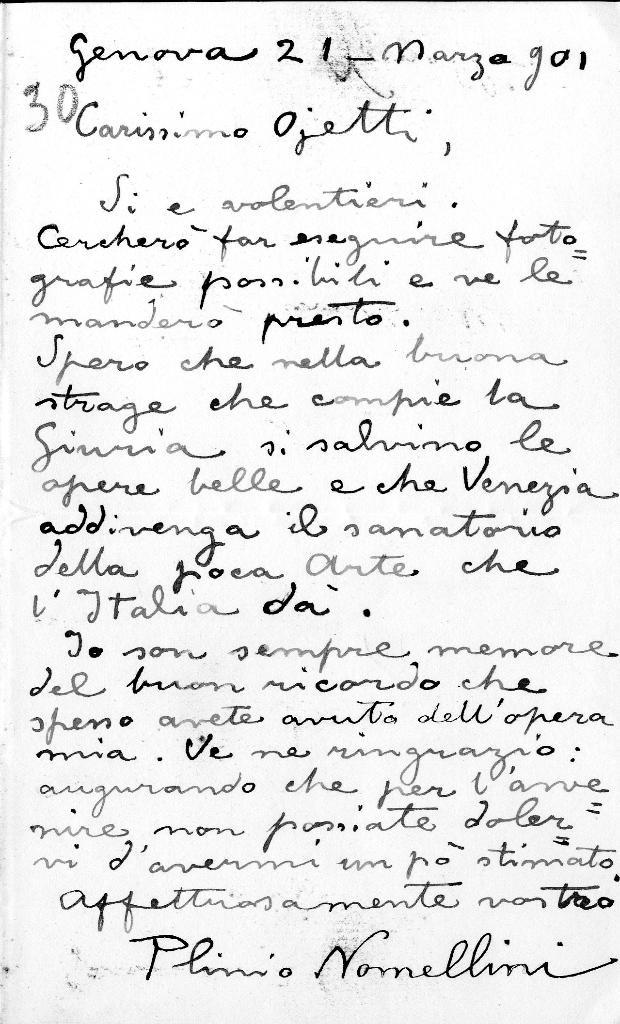 Genova 21 - Marzo 901
30
Carissimo Ojetti,
Si e volentieri.
Cercherò far eseguire foto=
grafie possibili e ve le
manderò presto.
Spero che nella buona
strage che compie la
Giuria si salvino le
opere belle e che Venezia
addivenga il sanatorio
della poca Arte che
l'Italia dà.
Io son sempre memore
del buon ricordo che
spesso avete avuto dell'opera
mia. Ve ne ringrazio:
augurando che per l'avve=
nire non possiate doler=
vi d'avermi un pò stimato.
Affettuosamente vostro
Plinio Nomellini